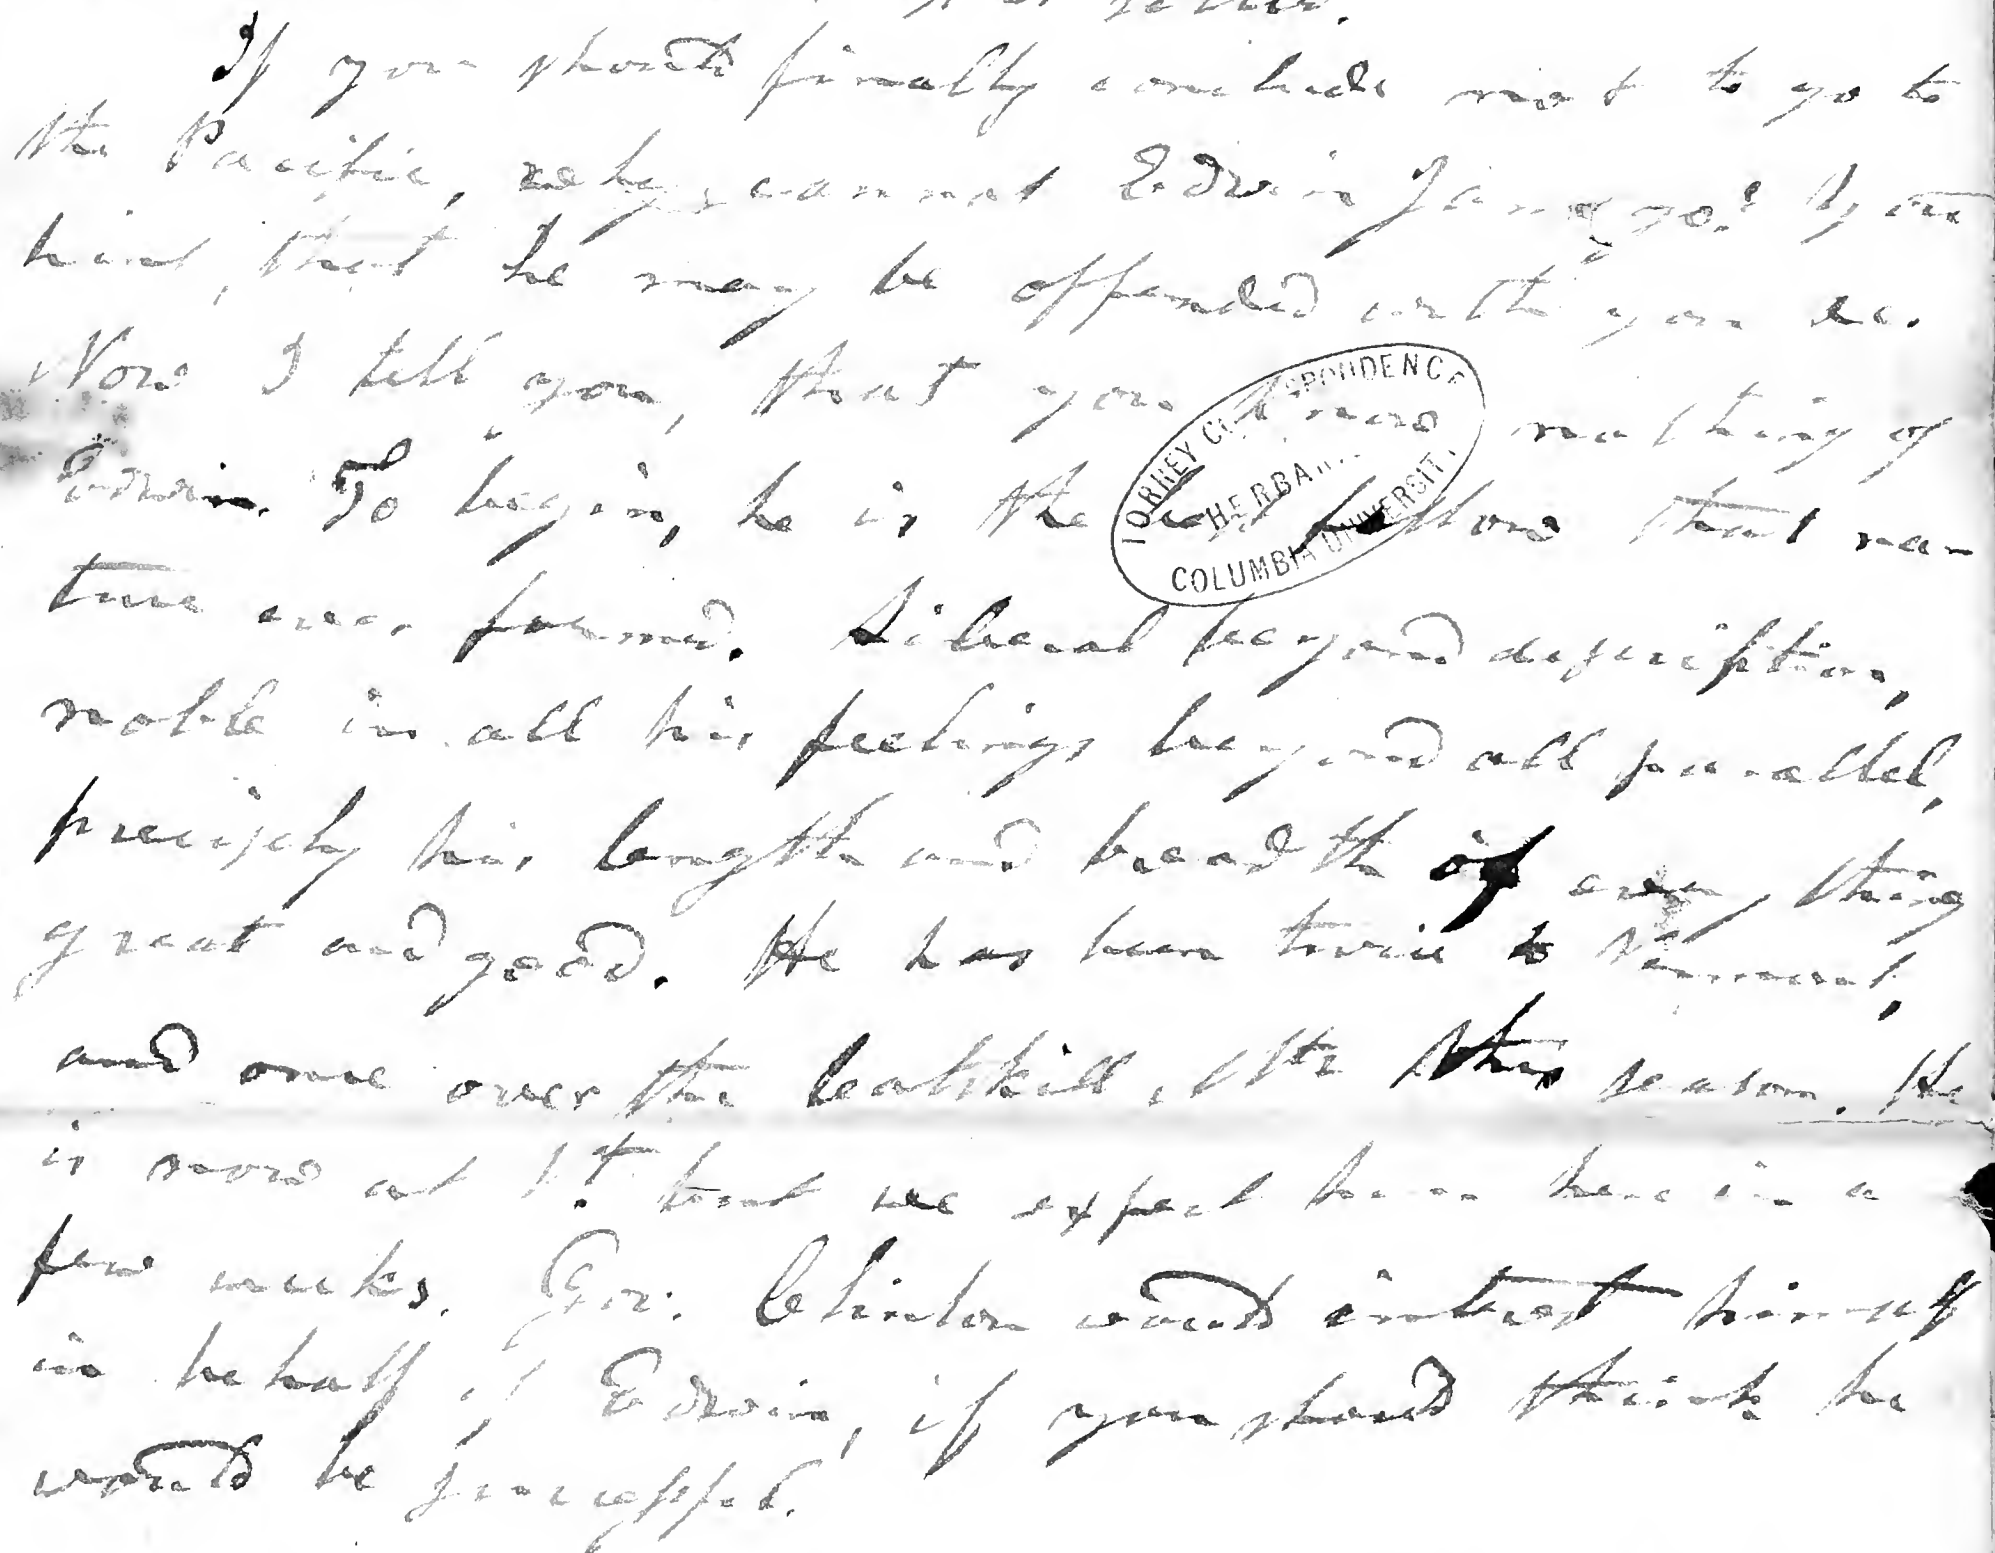 If you should finally conclude not to go to
the Pacific, why cannot Edwin James go? You
hint, that he may be offended with you &c.
Now I tell you, that you know nothing of
Edwin. To begin, he is the best fellow that na-
ture ever formed. Liberal beyond description,
noble in all his feelings beyond all parallel,
precisely his length and breadth of every thing
great and good. He has been twice to Vermont,
and once over the Catskill, &c this season. He
is now at but we expect him here in a
few weeks. Gov. Clinton would interest himself
in behalf of Edwin, if you should think he
would be successful.
TORREY CORRESPONDENCE
HERBARIUM
COLUMBIA UNIVERSITY